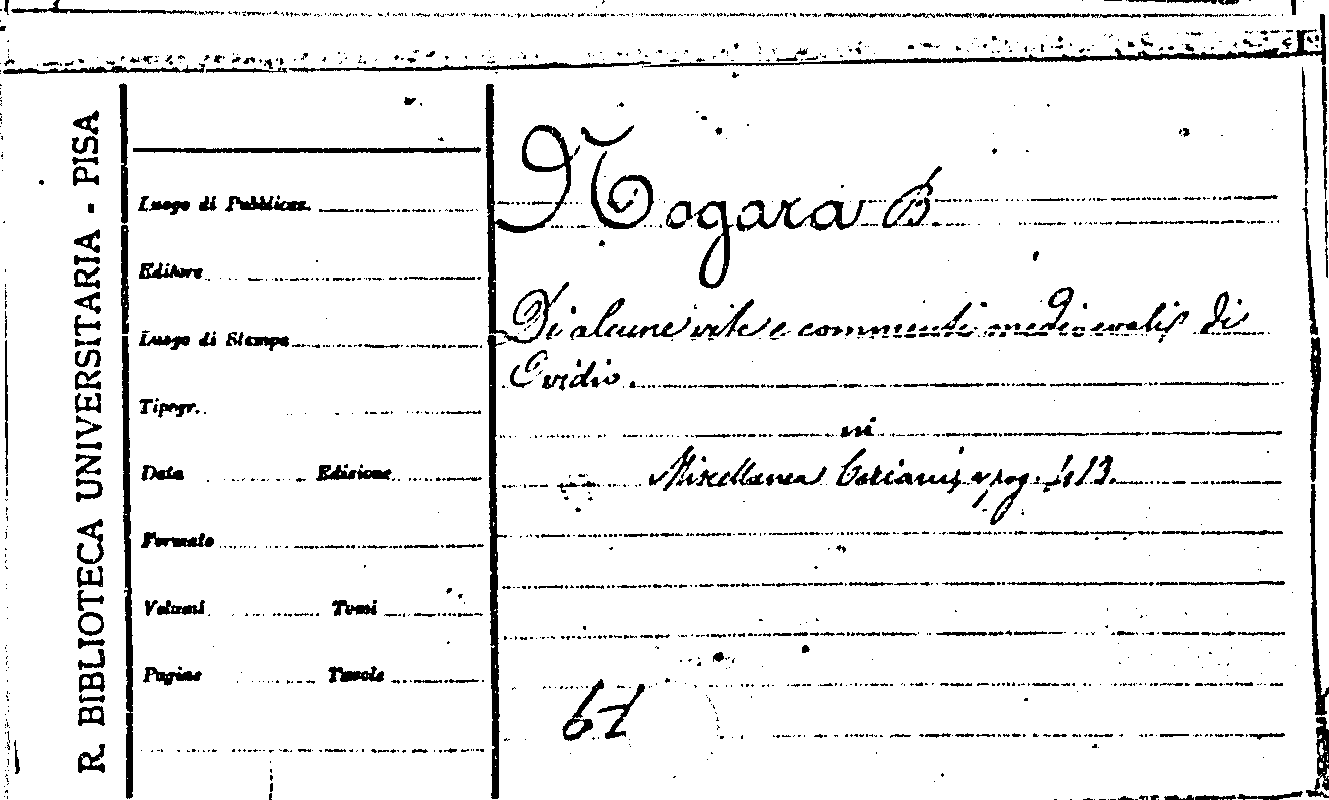 R. BIBLIOTECA UNIVERSITARIA - PISA
Luogo di Pubblicaz.
Editore
Luogo di Stampa
Tipogr.
Data Edizione
Formato
Volumi Tomi
Pagine Tavole
Nogara B.
Di alcune vite e commenti medioevali di
Ovidio.
in
Miscellanea Ceriani, pag. 413.